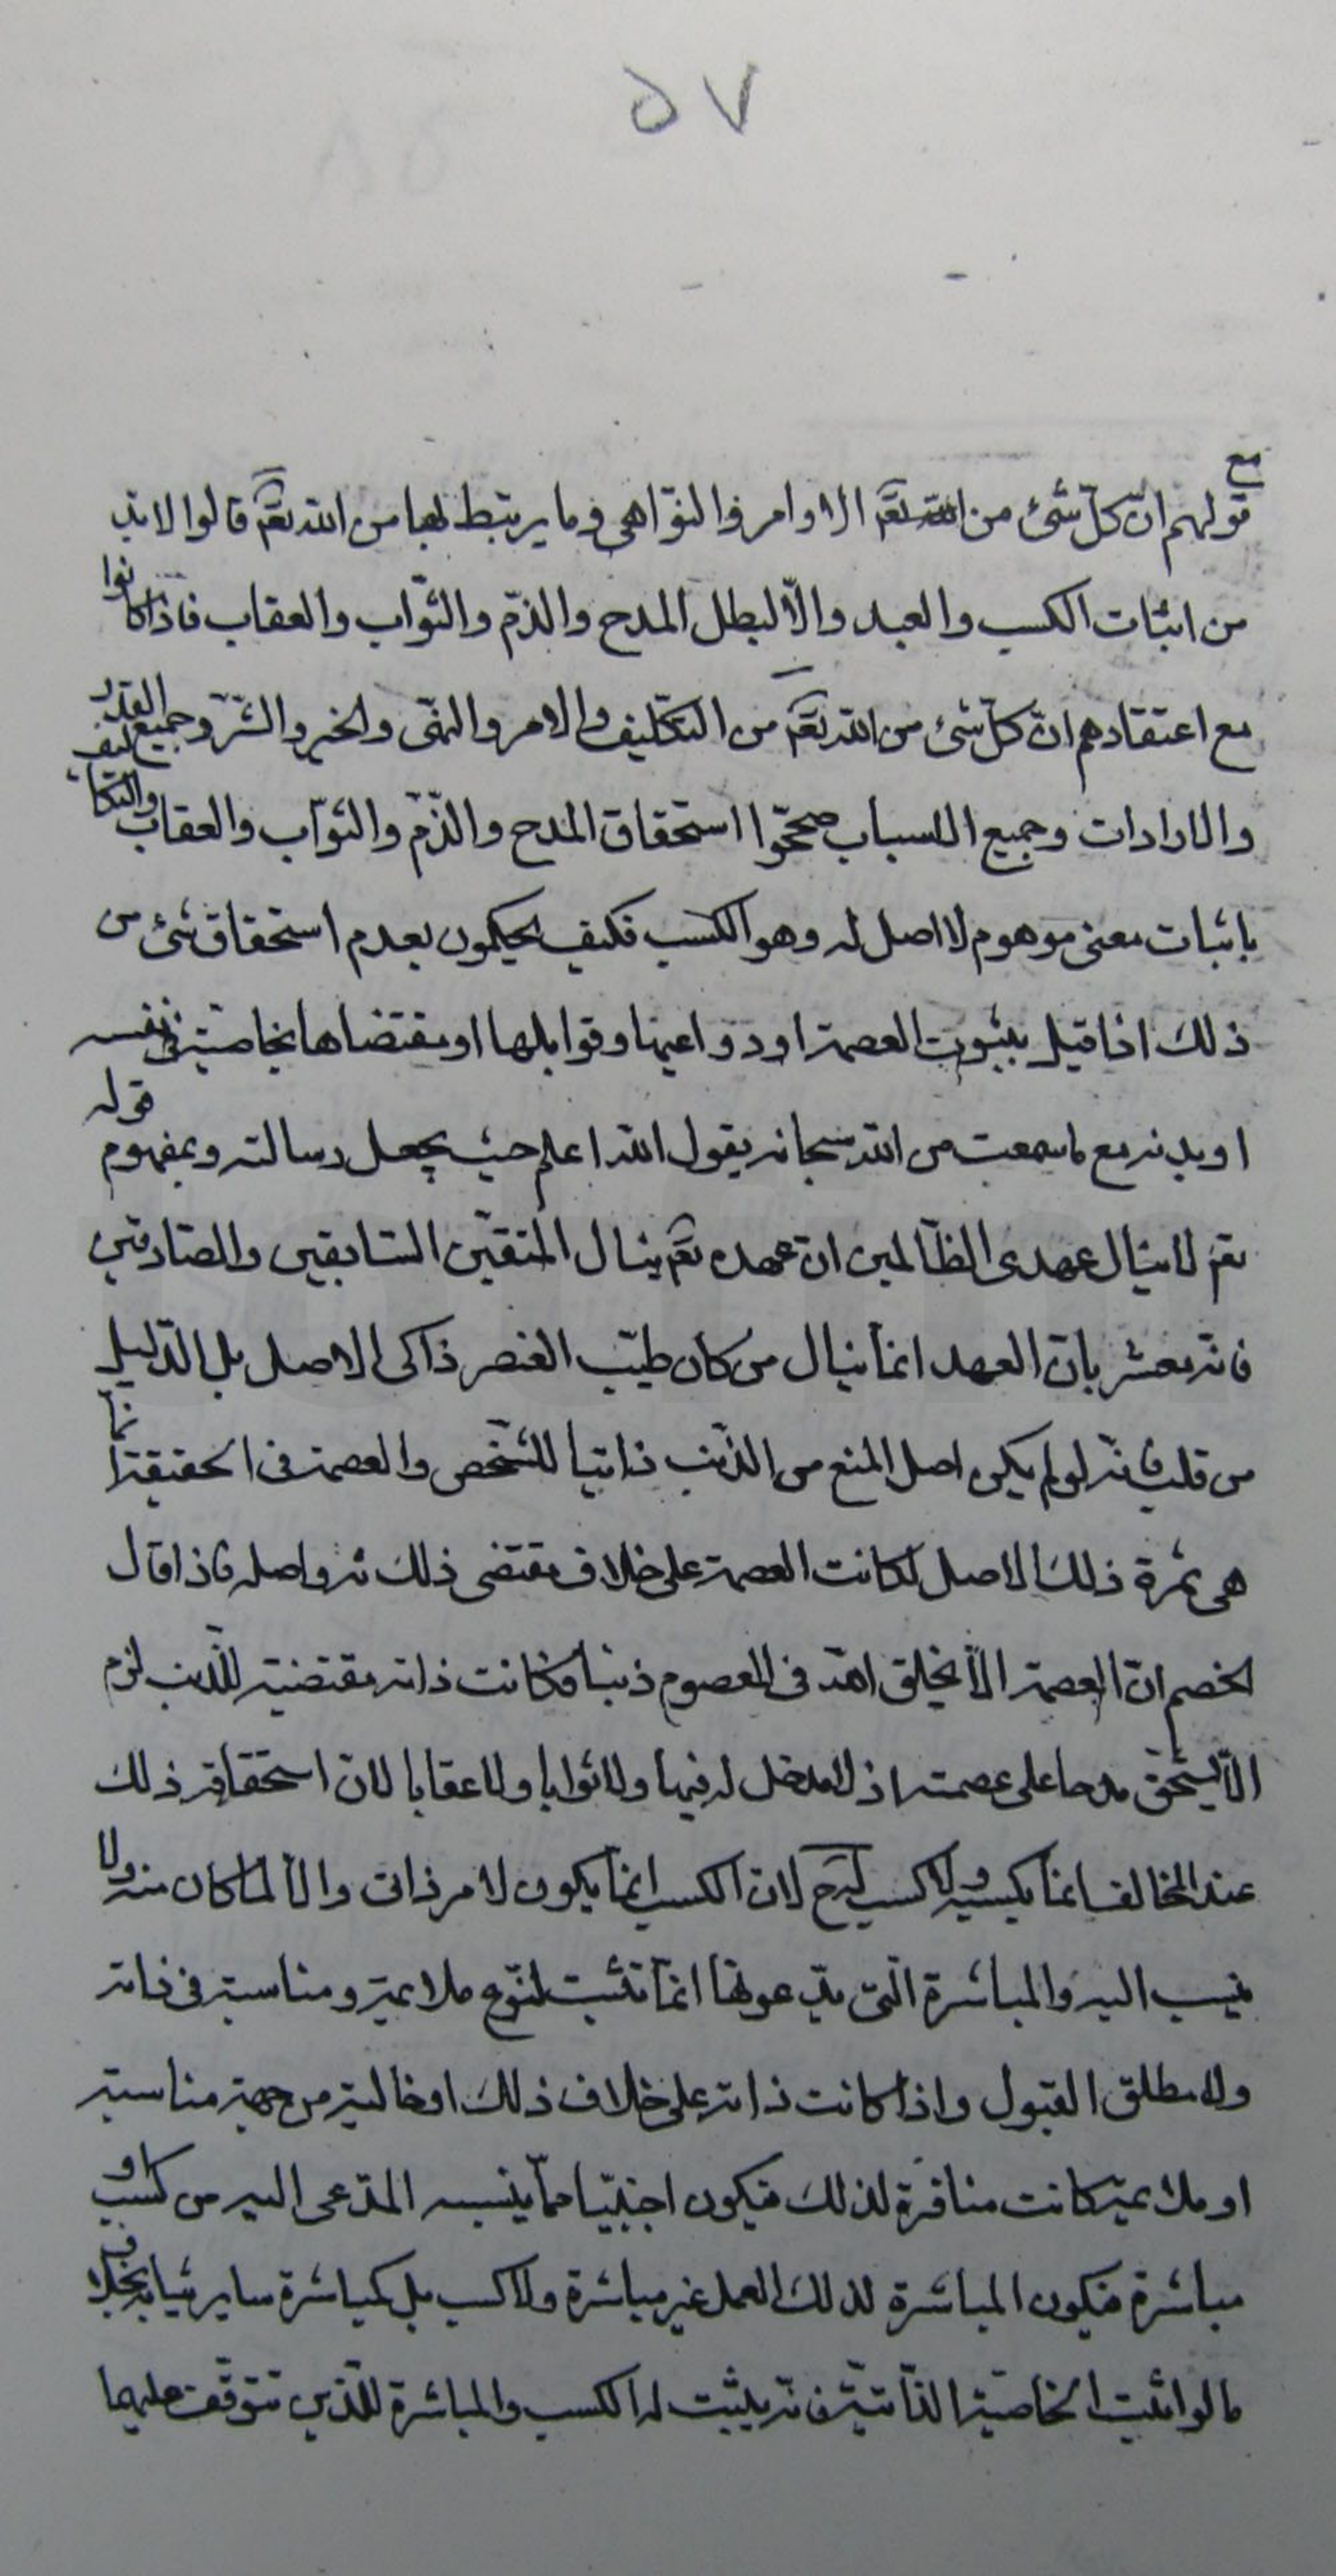 ٥٧
مع
قولهم ان كلّ شئ من الله تعم الاوامر والنّواهي وما يرتبط بهما من الله تعم قالوا لا بد
من اثبات الكسب والعبد والّا لبطل المدح والذمّ والثّواب والعقاب فاذا كانوا
مع اعتقادهم انّ كلّ شئ من الله تعم من التّكليف والامر والنّهى والخير والشّرّ وجميع القدر
والارادات وجميع الاسباب صحّحوا استحقاق المدح والذّمّ والثّواب والعقاب والتكاليف
باثبات معنى موهوم لا اصل له وهو الكسب فكيف يحكمون بعدم استحقاق شئ من
ذلك اذا قيل بثبوت العصمة او دواعيها وقوابلها او مقتضاها بخاصية فى نفسه
او بدنه مع ما سمعت من الله سبحانه يقول الله اعلم حيث يجعل رسالته وبمفهوم قوله
تعم لا ينال عهدى الظّالمين انّ عهده تعم ينال المتقين السّابقين والصّادقين
فانه مشعر بانّ العهد انما ينال من كان طيّب العنصر ذاكى الاصل بل الدّليل
من قلب فانّه لو لم يكن اصل المنع من الذّنب ذاتيا للشّخص والعصمة فى الحقيقة انما
هى ثمرة ذلك الاصل لكانت العصمة على خلاف مقتضى ذلك واصله فاذا قال
الخصم انّ العصمة الّا يخلق الله فى المعصوم ذنبا وكانت ذاته مقتضية للذّنب لزم
الّا يستحقّ مدحا على عصمته اذ لا مدخل له فيها ولا ثوابا ولا عقابا لان استحقاقه ذلك
عند المخالف انما بكسبه ولا كسب له ح لان الكسب انما يكون لامر ذاتى والّا لما كان منه ولا
ينسب اليه والمباشرة الّتى يدّعونها انما تثبت لنوع ملائمة ومناسبة فى ذاته
ولا مطلق القبول واذا كانت ذاته على خلاف ذلك او خالية من جهة مناسبة
او ملائمة كانت منافرة لذلك فيكون اجنبيّا ممّا ينسبه المدّعى اليه من كسب او
مباشرة فيكون المباشرة لذلك العمل غير مباشرة ولا كسب بل كمباشرة ساير ثيابه بخلاف
ما لو اثبت الخاصية الذّاتيّة فانه يثبت له الكسب والمباشرة للذين تتوقّف عليهما